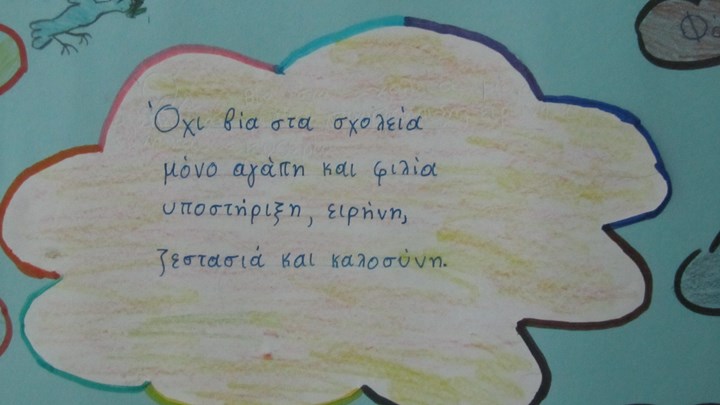 Όχι βία στα σχολεία
μόνο αγάπη και φιλία
υποστήριξη, ειρήνη,
ζεστασιά και καλοσύνη.